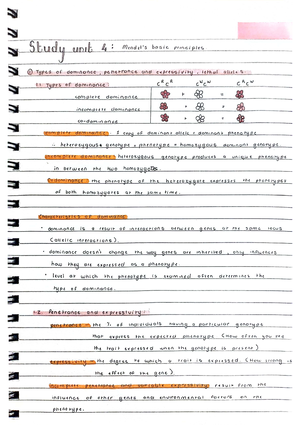 Study unit 4: Mendel's basic principles
① Types of dominance, penetrance and expressivity, lethal alleles
1.1 Types of dominance:
complete dominance
incomplete dominance
co-dominance
complete dominance: 1 copy of dominant allele = dominant phenotype
∴ heterozygous genotype + phenotype = homozygous dominant genotype
incomplete dominance: heterozygous genotype produces a unique phenotype
in between the two homozygotes
Codominance: the phenotype of the heterozygote expresses the phenotypes
of both homozygotes at the same time.
Characteristics of dominance
• dominance is a result of interactions between genes at the same locus
(allelic interactions).
• dominance doesn't change the way genes are inherited, only influences
how they are expressed as a phenotype.
• level at which the phenotype is examined often determines the
type of dominance.
1.2 Penetrance and expressivity:
penetrance: the % of individuals having a particular genotype
that express the expected phenotype (how often you see
the trait expressed when the genotype is present)
expressivity: the degree to which a trait is expressed (how strong is
the effect of the gene).
incomplete penetrance and variable expressivity: result from the
influence of other genes and environmental factors on the
phenotype.